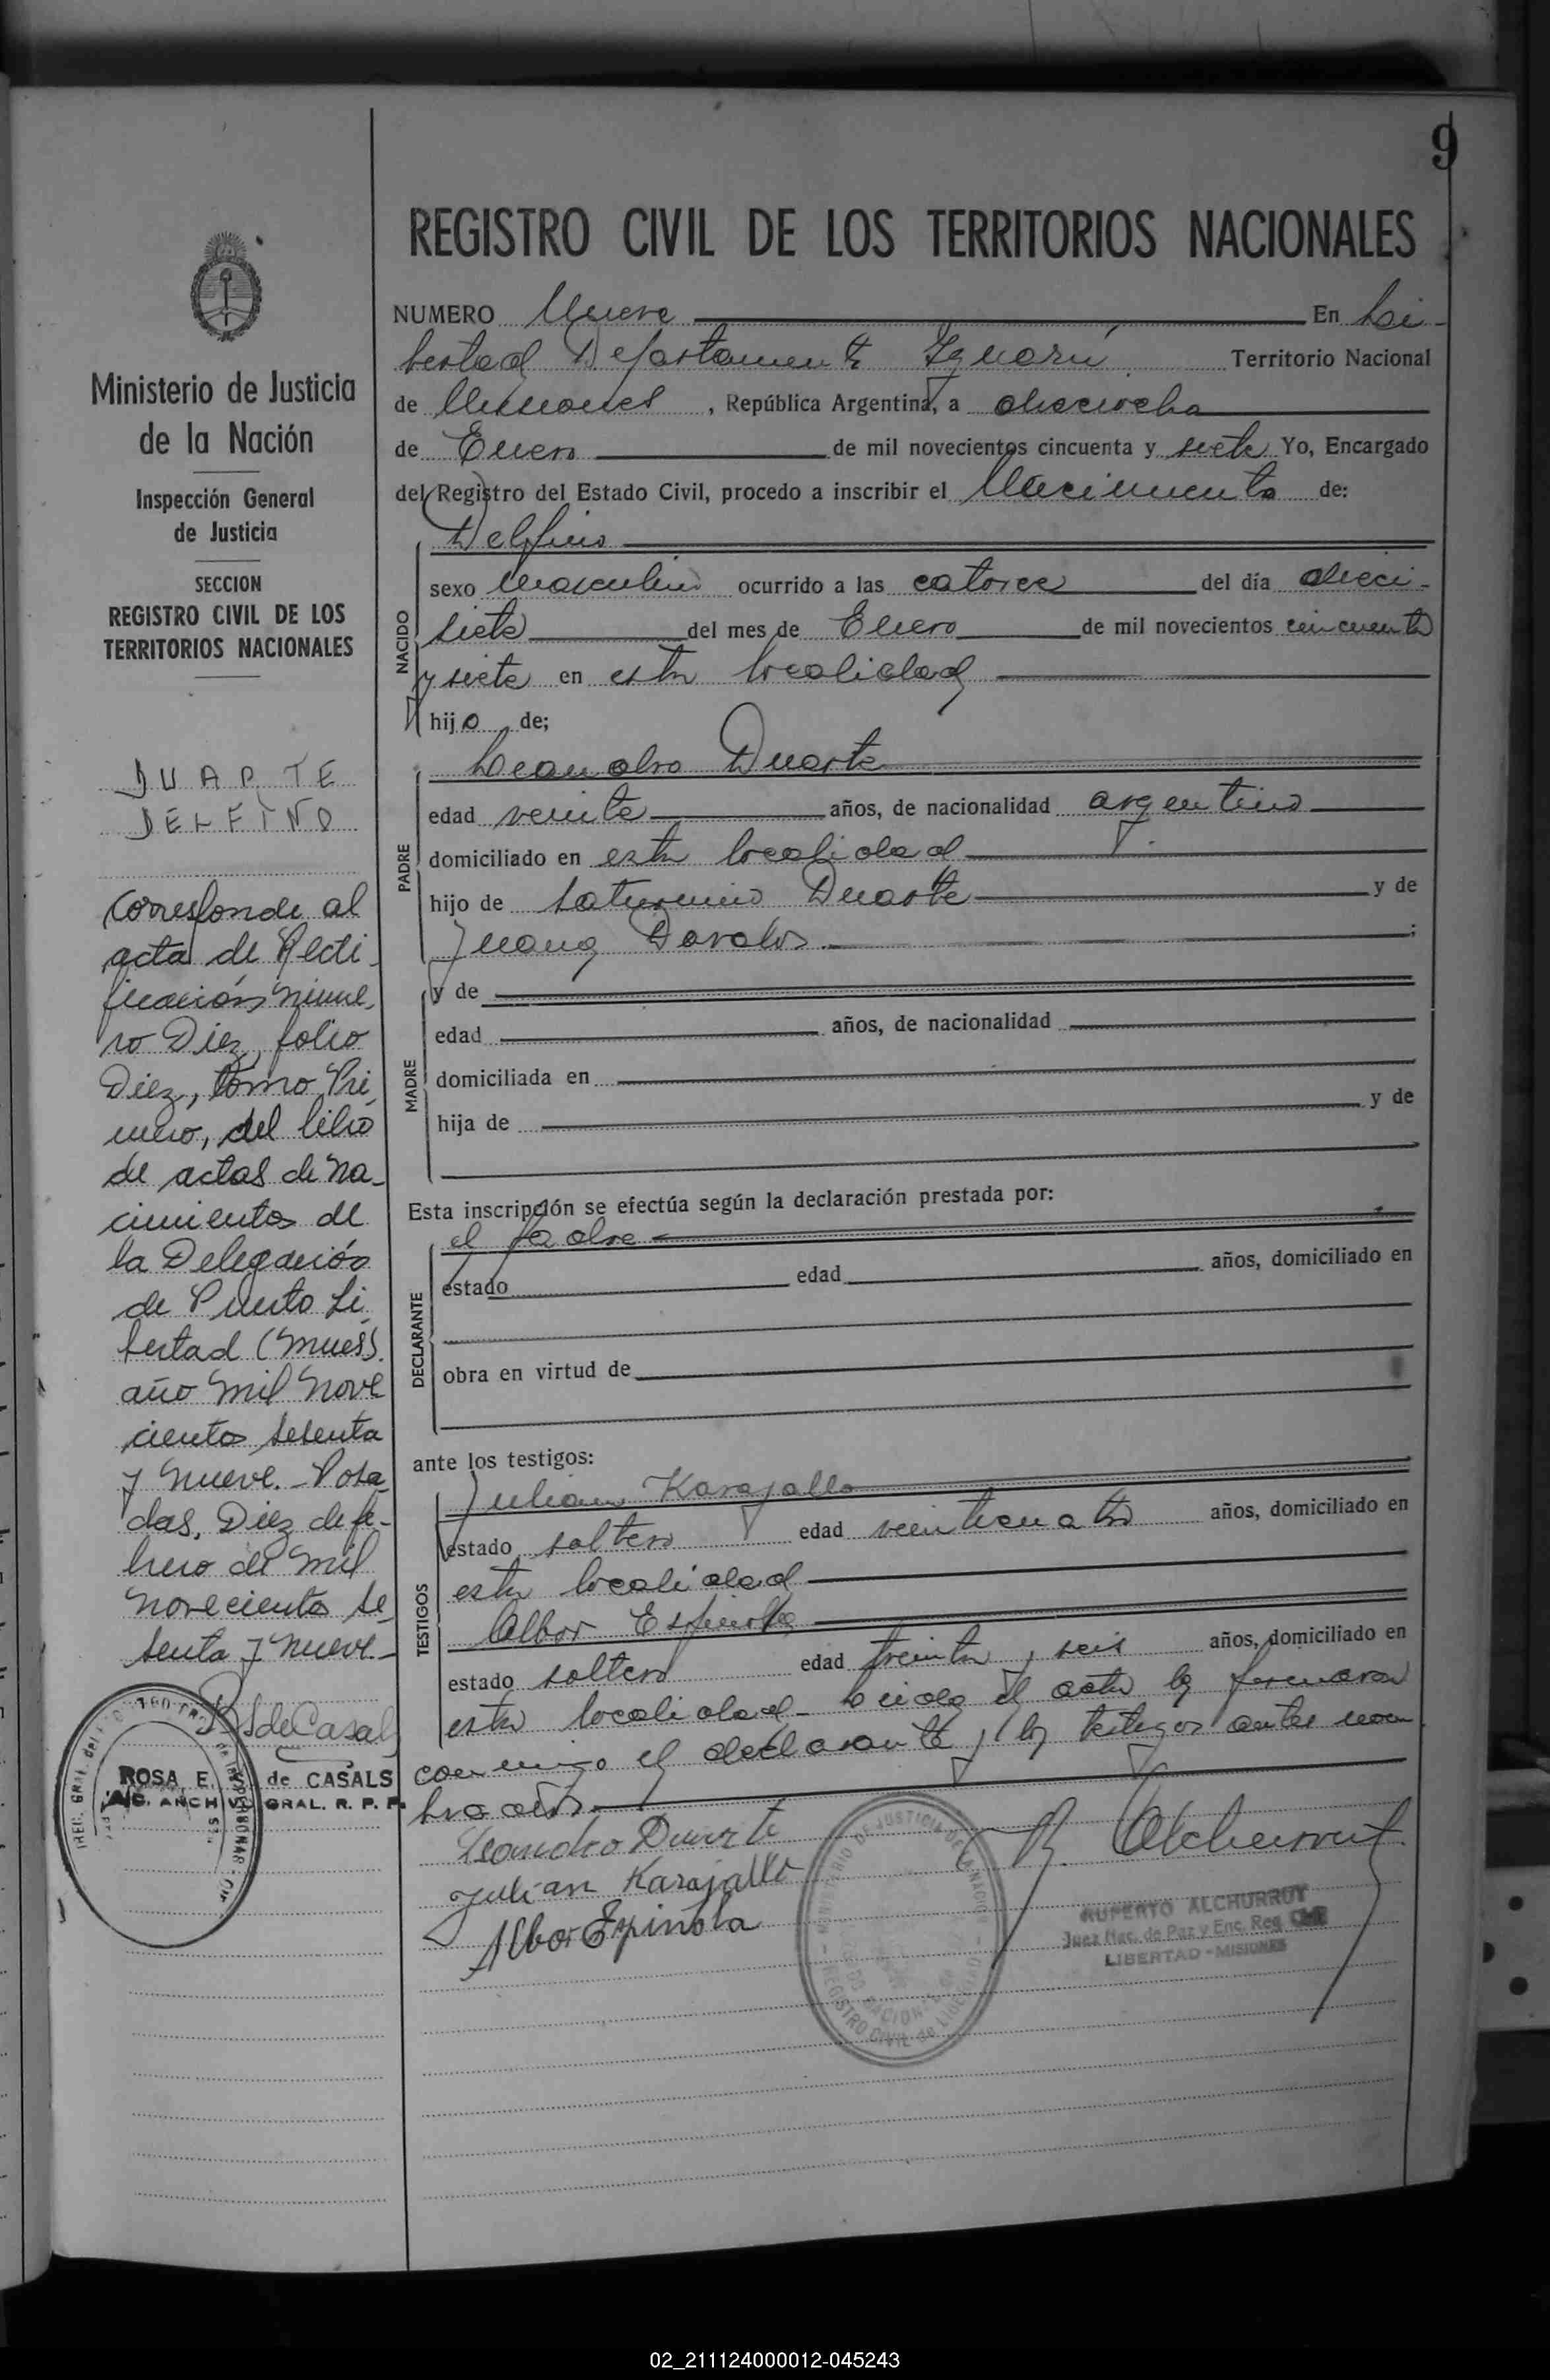 9
REGISTRO CIVIL DE LOS TERRITORIOS NACIONALES
NUMERO Nueve En Li-
bertad Departamento Iguazú Territorio Nacional
de Misiones, República Argentina, a dieciocho
de Enero de mil novecientos cincuenta y siete Yo, Encargado
del Registro del Estado Civil, procedo a inscribir el Nacimiento de:
NACIDO
Delfino
sexo masculino ocurrido a las catorce del día dieci-
siete del mes de Enero de mil novecientos cincuenta
y siete en esta localidad
hijo de;
PADRE
Leandro Duarte
edad veinte años, de nacionalidad argentino
domiciliado en esta localidad
hijo de Saturnino Duarte y de
Juana Davalos ;
MADRE
y de
edad años, de nacionalidad
domiciliada en
hija de y de
Esta inscripción se efectúa según la declaración prestada por:
DECLARANTE
el padre
estado edad años, domiciliado en
obra en virtud de
ante los testigos:
TESTIGOS
Julian Karajallo
estado soltero edad veinticuatro años, domiciliado en
esta localidad
Albor Espinola
estado soltero edad treinta y seis años, domiciliado en
esta localidad - Leida el acta la firmaron
conmigo el declarante y los testigos antes nom
brados.
Leandro Duarte
Julian Karajallo
Albor Espinola
R. Alchurrut
RUPERTO ALCHURRUT
Juez Nac. de Paz y Enc. Reg. Civil
LIBERTAD - MISIONES
MINISTERIO DE JUSTICIA DE LA NACION
REGISTRO CIVIL de LIBERTAD
Ministerio de Justicia
de la Nación
Inspección General
de Justicia
SECCION
REGISTRO CIVIL DE LOS
TERRITORIOS NACIONALES
DUARTE
DELFINO
Corresponde al
acta de Recti-
ficación núme-
ro Diez, folio
Diez, tomo Pri
mero, del libro
de actas de Na-
cimientos de
la Delegación
de Puerto Li
bertad (Mnes).
año mil nove
cientos sesenta
y nueve. - Posa
das, Diez de fe-
brero de mil
novecientos se
senta y nueve. -
de Casals
ROSA E. de CASALS
A/C. ARCHIVO GRAL. R. P. P.
02_211124000012-045243